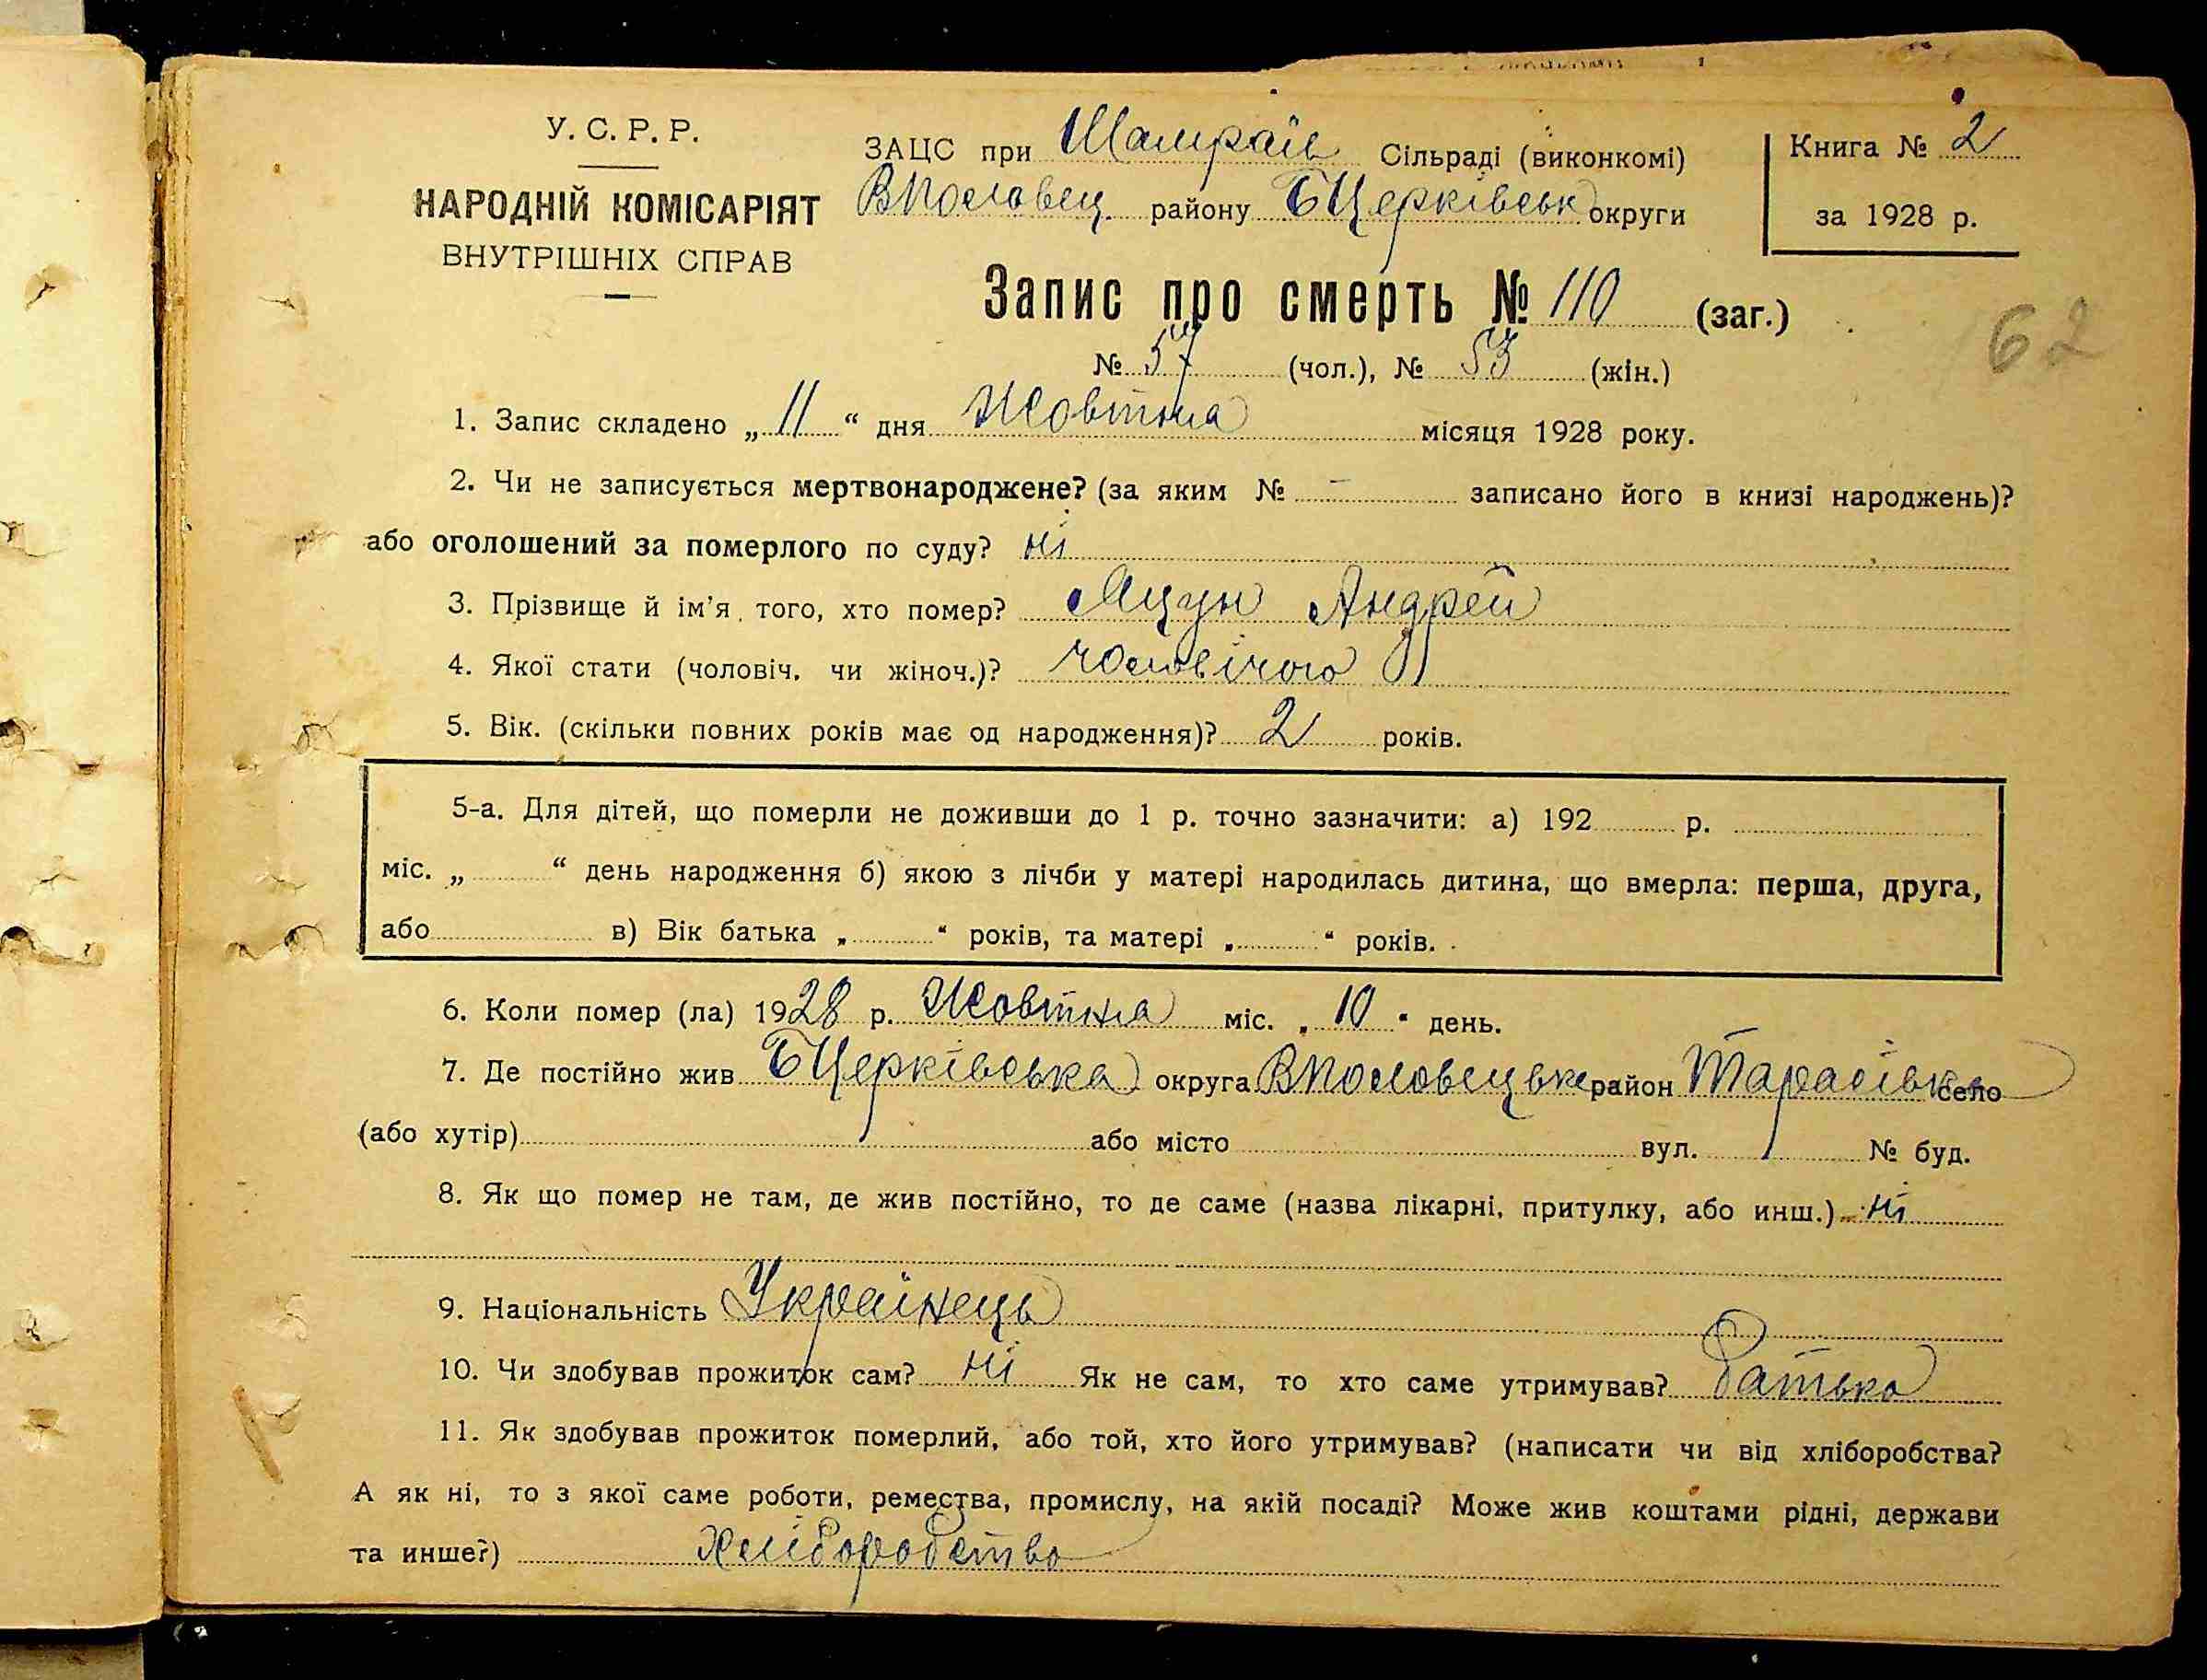 У. С. Р. Р.
НАРОДНІЙ КОМІСАРІЯТ
ВНУТРІШНІХ СПРАВ
ЗАЦС при Шамраїв Сільраді (виконкомі)
ВПоловец. району БЦерківськ округи
Книга № 2
за 1928 р.
Запис про смерть № 110 (заг.)
№ 57 (чол.), № 53 (жін.)
62
1. Запис складено „ 11 “ дня Жовтня місяця 1928 року.
2. Чи не записується мертвонароджене? (за яким № - записано його в книзі народжень)?
або оголошений за померлого по суду? ні
3. Прізвище й ім’я того, хто помер? Яцун Андрей
4. Якої стати (чоловіч. чи жіноч.)? чоловічого
5. Вік. (скільки повних років має од народження)? 2 років.
5-а. Для дітей, що померли не доживши до 1 р. точно зазначити: а) 192 р.
міс. „ “ день народження б) якою з лічби у матері народилась дитина, що вмерла: перша, друга,
або в) Вік батька „ “ років, та матері „ “ років.
6. Коли помер (ла) 1928 р. Жовтня міс. „ 10 “ день.
7. Де постійно жив БЦерківська округа ВПоловецьке район Тарасівка село
(або хутір) або місто вул. № буд.
8. Як що помер не там, де жив постійно, то де саме (назва лікарні, притулку, або инш.) ні
9. Національність Українець
10. Чи здобував прожиток сам? ні Як не сам, то хто саме утримував? батько
11. Як здобував прожиток померлий, або той, хто його утримував? (написати чи від хліборобства?
А як ні, то з якої саме роботи, ремества, промислу, на якій посаді? Може жив коштами рідні, держави
та инше?) хліборобство